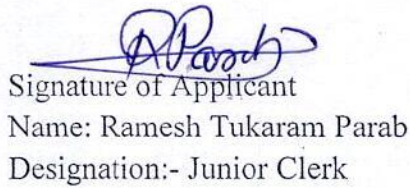 RParab
Signature of Applicant
Name: Ramesh Tukaram Parab
Designation:- Junior Clerk